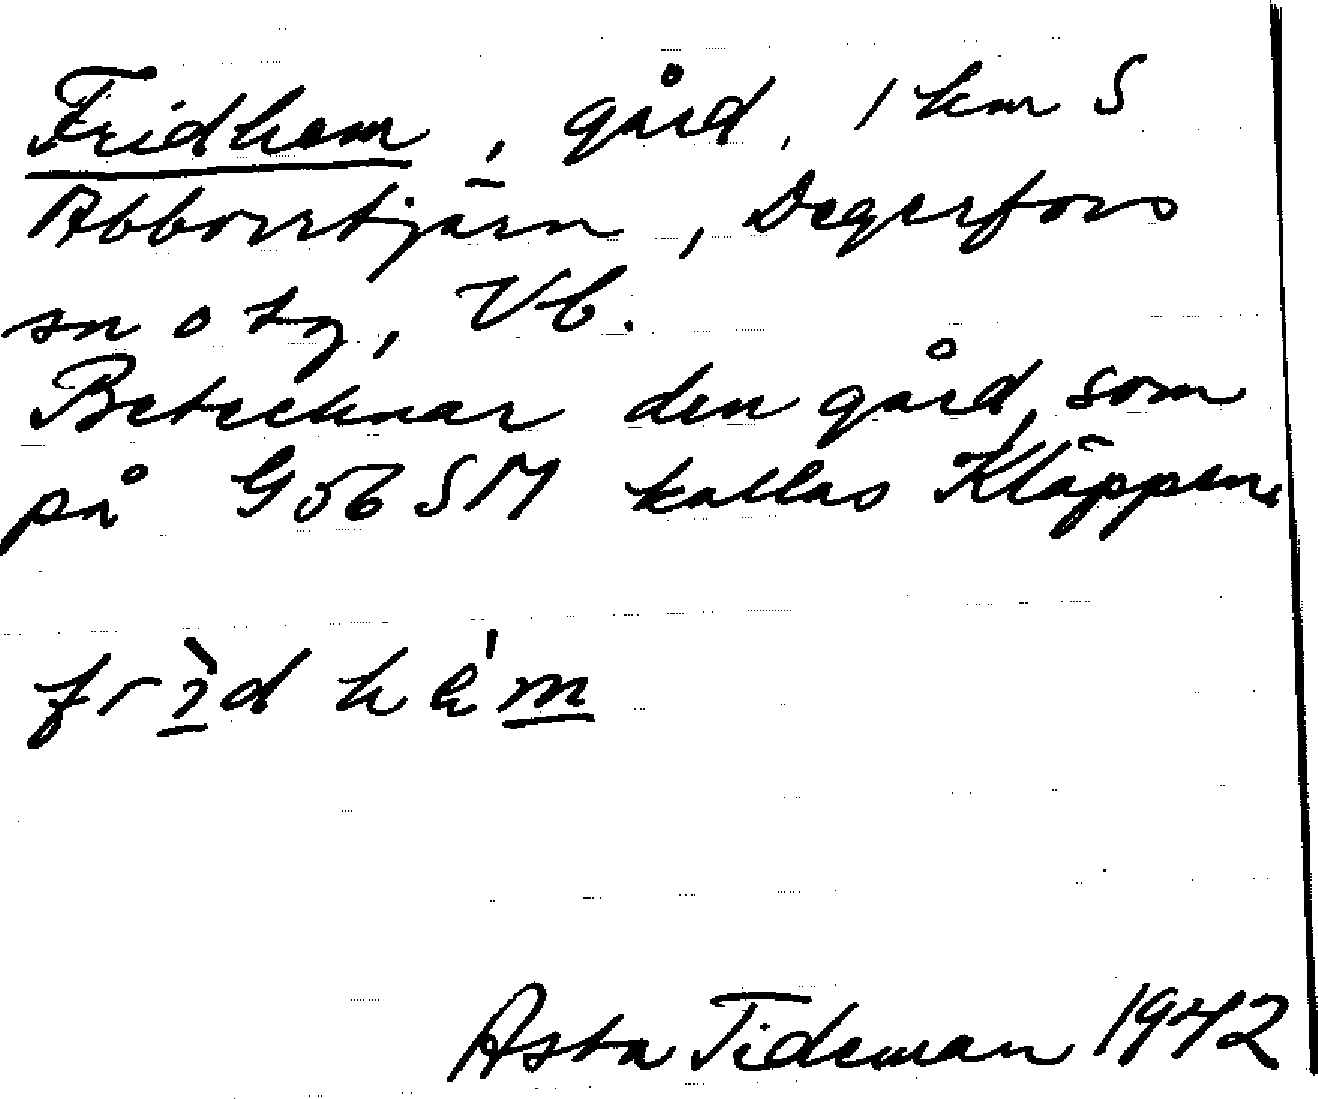 Fridhem, gård, 1 km S
Abborrtjärn, Degerfors
sn o tg, Vb.
Betecknar den gård, som
på GöbSM kallas Kläppen.
frìd hèm
Asta Tideman 1942